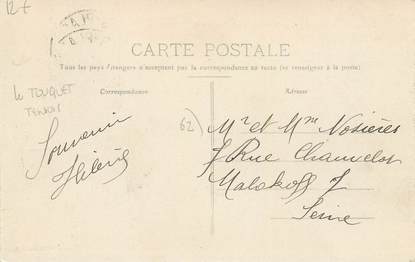 12 €
CARTE POSTALE
Tous les pays étrangers n'acceptent pas la correspondance au recto (se renseigner à la poste)
Correspondance
Adresse
le TOUQUET
TENNIS
62)
Souvenir
Hélène
Mr et Mme Nosières
7 Rue Chauvelot
Malakoff
Seine